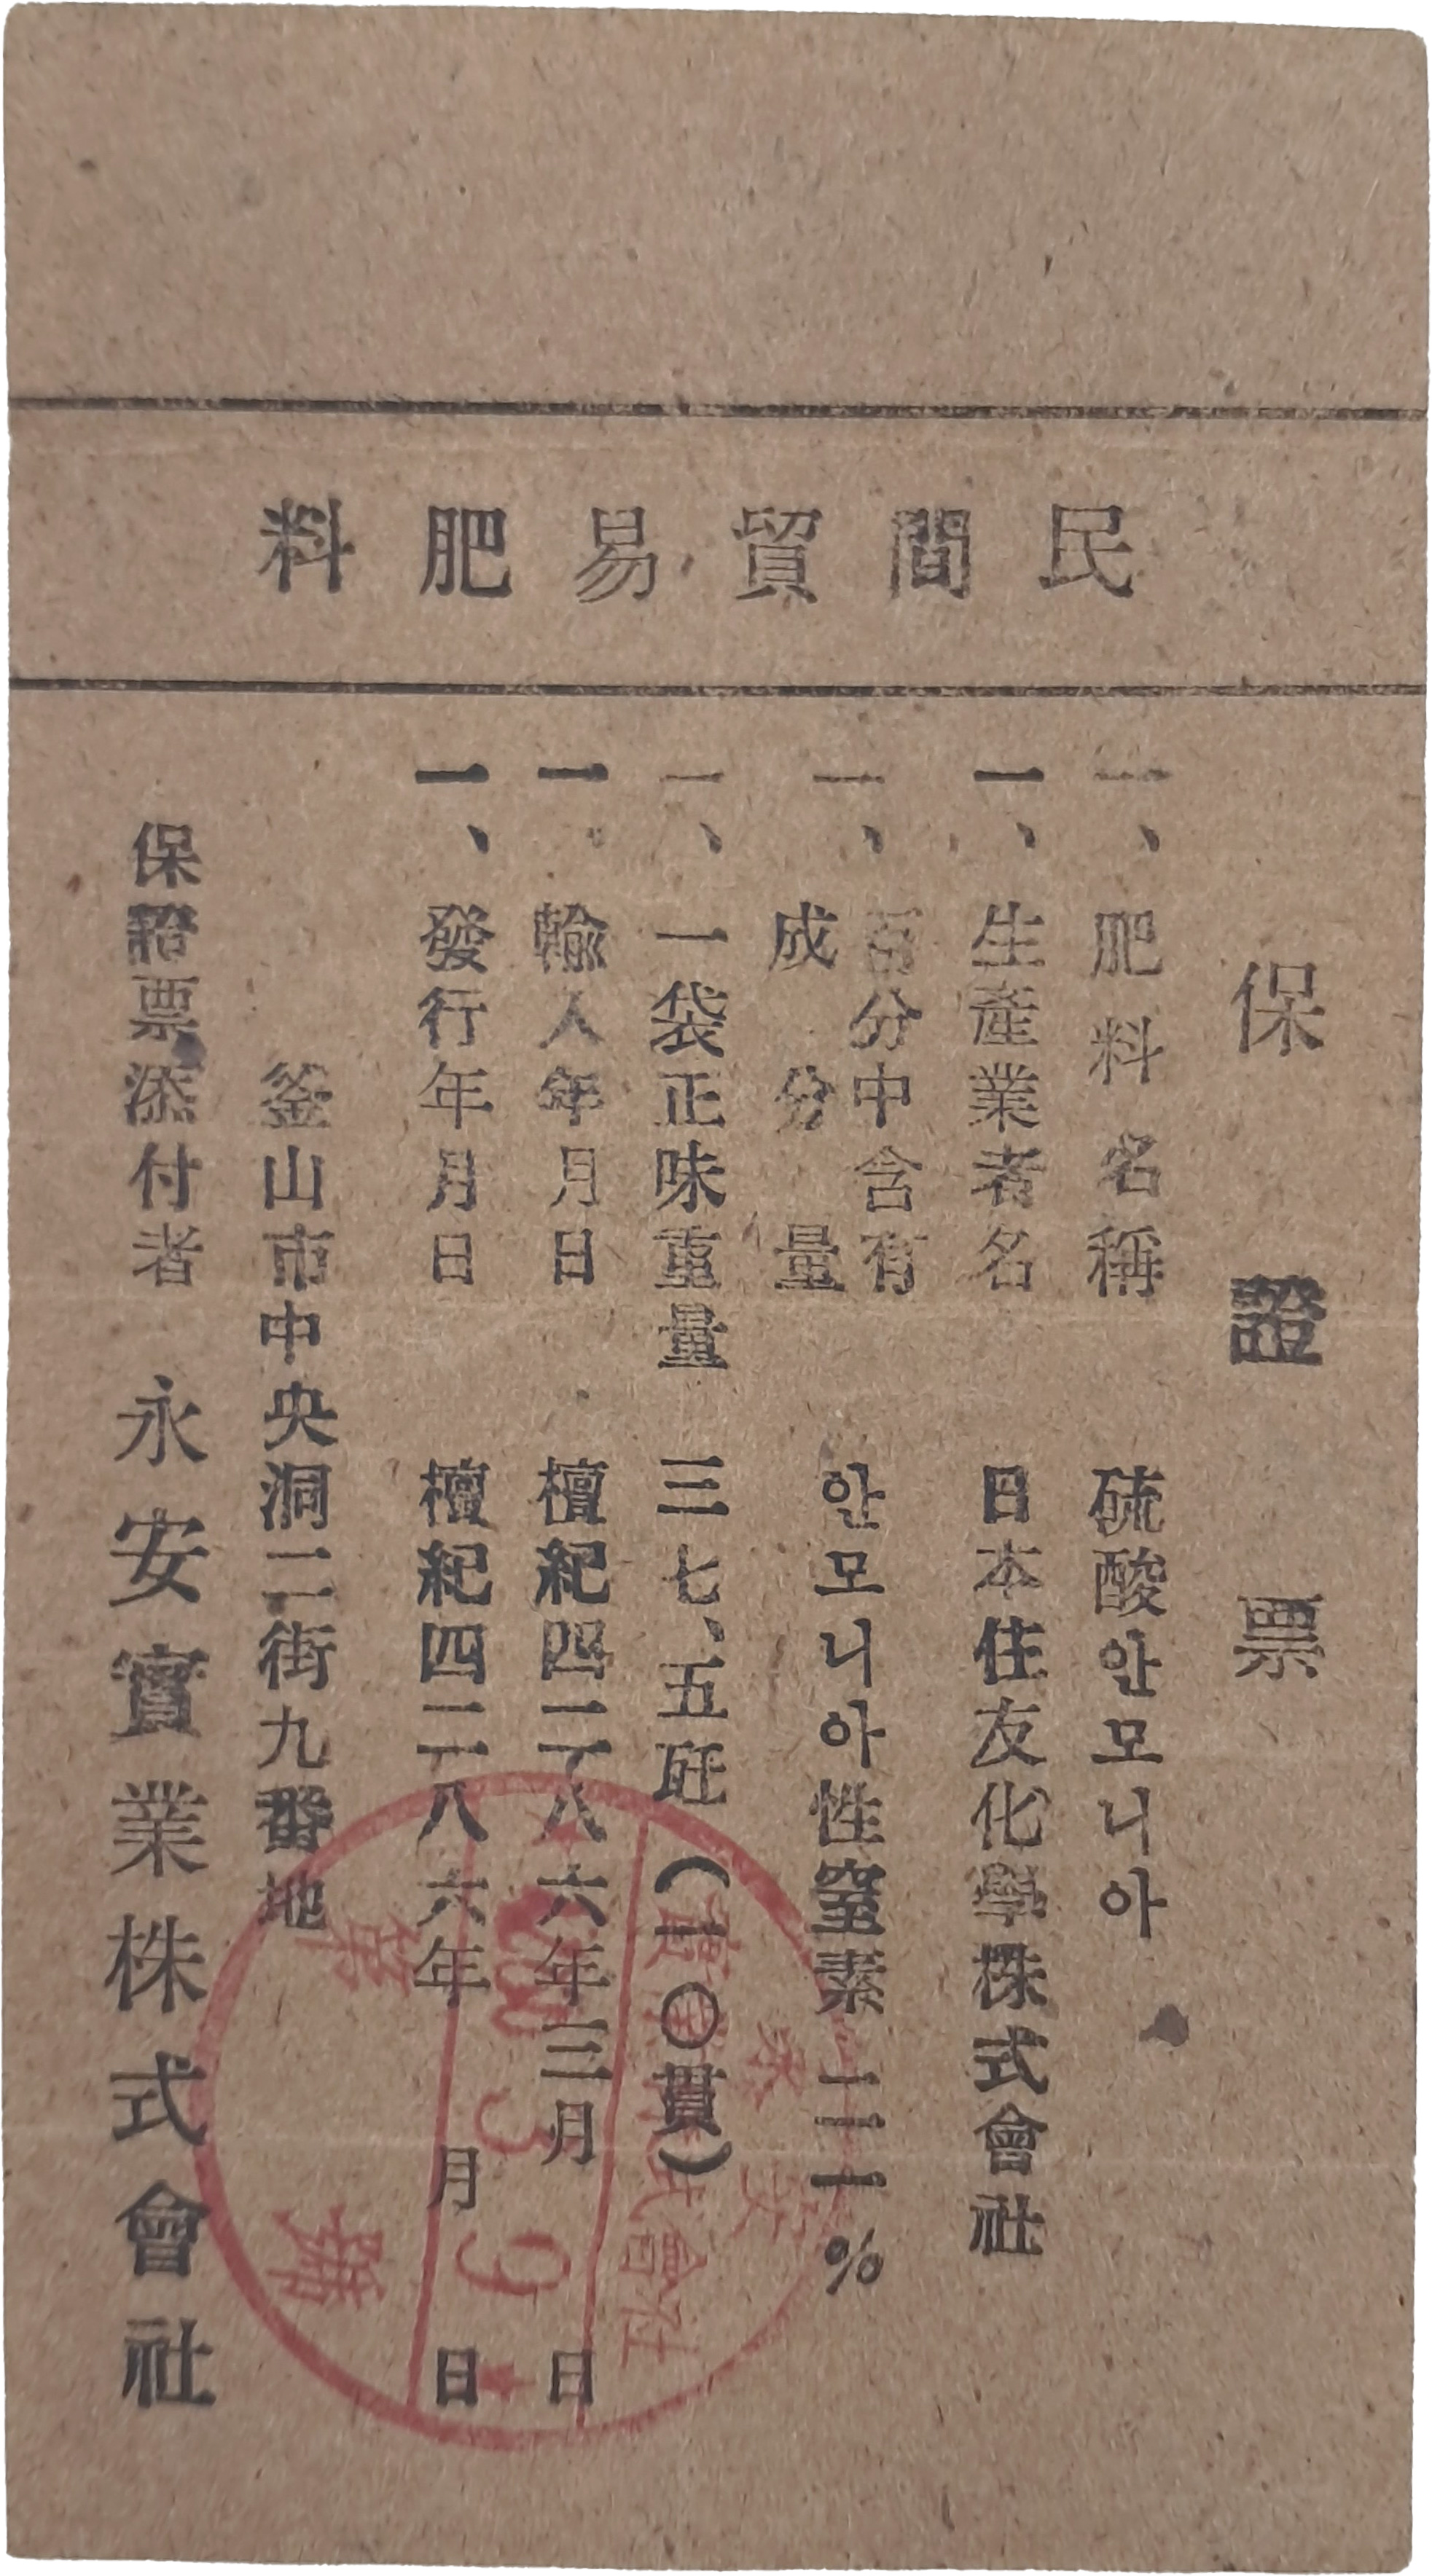 民間貿易肥料
保證票
一、肥料名稱 硫酸안모니아
一、生產業者名 日本住友化學株式會社
一、百分中含有成分量 안모니아性窒素 二一%
一、一袋正味重量 三七、五瓩(一〇貫)
一、輸入年月日 檀紀四二八六年三月 日
一、發行年月日 檀紀四二八六年 月 日
釜山市中央洞二街九番地
保證票添付者 永安實業株式會社
永安
實業株式會社
3 9
第 號